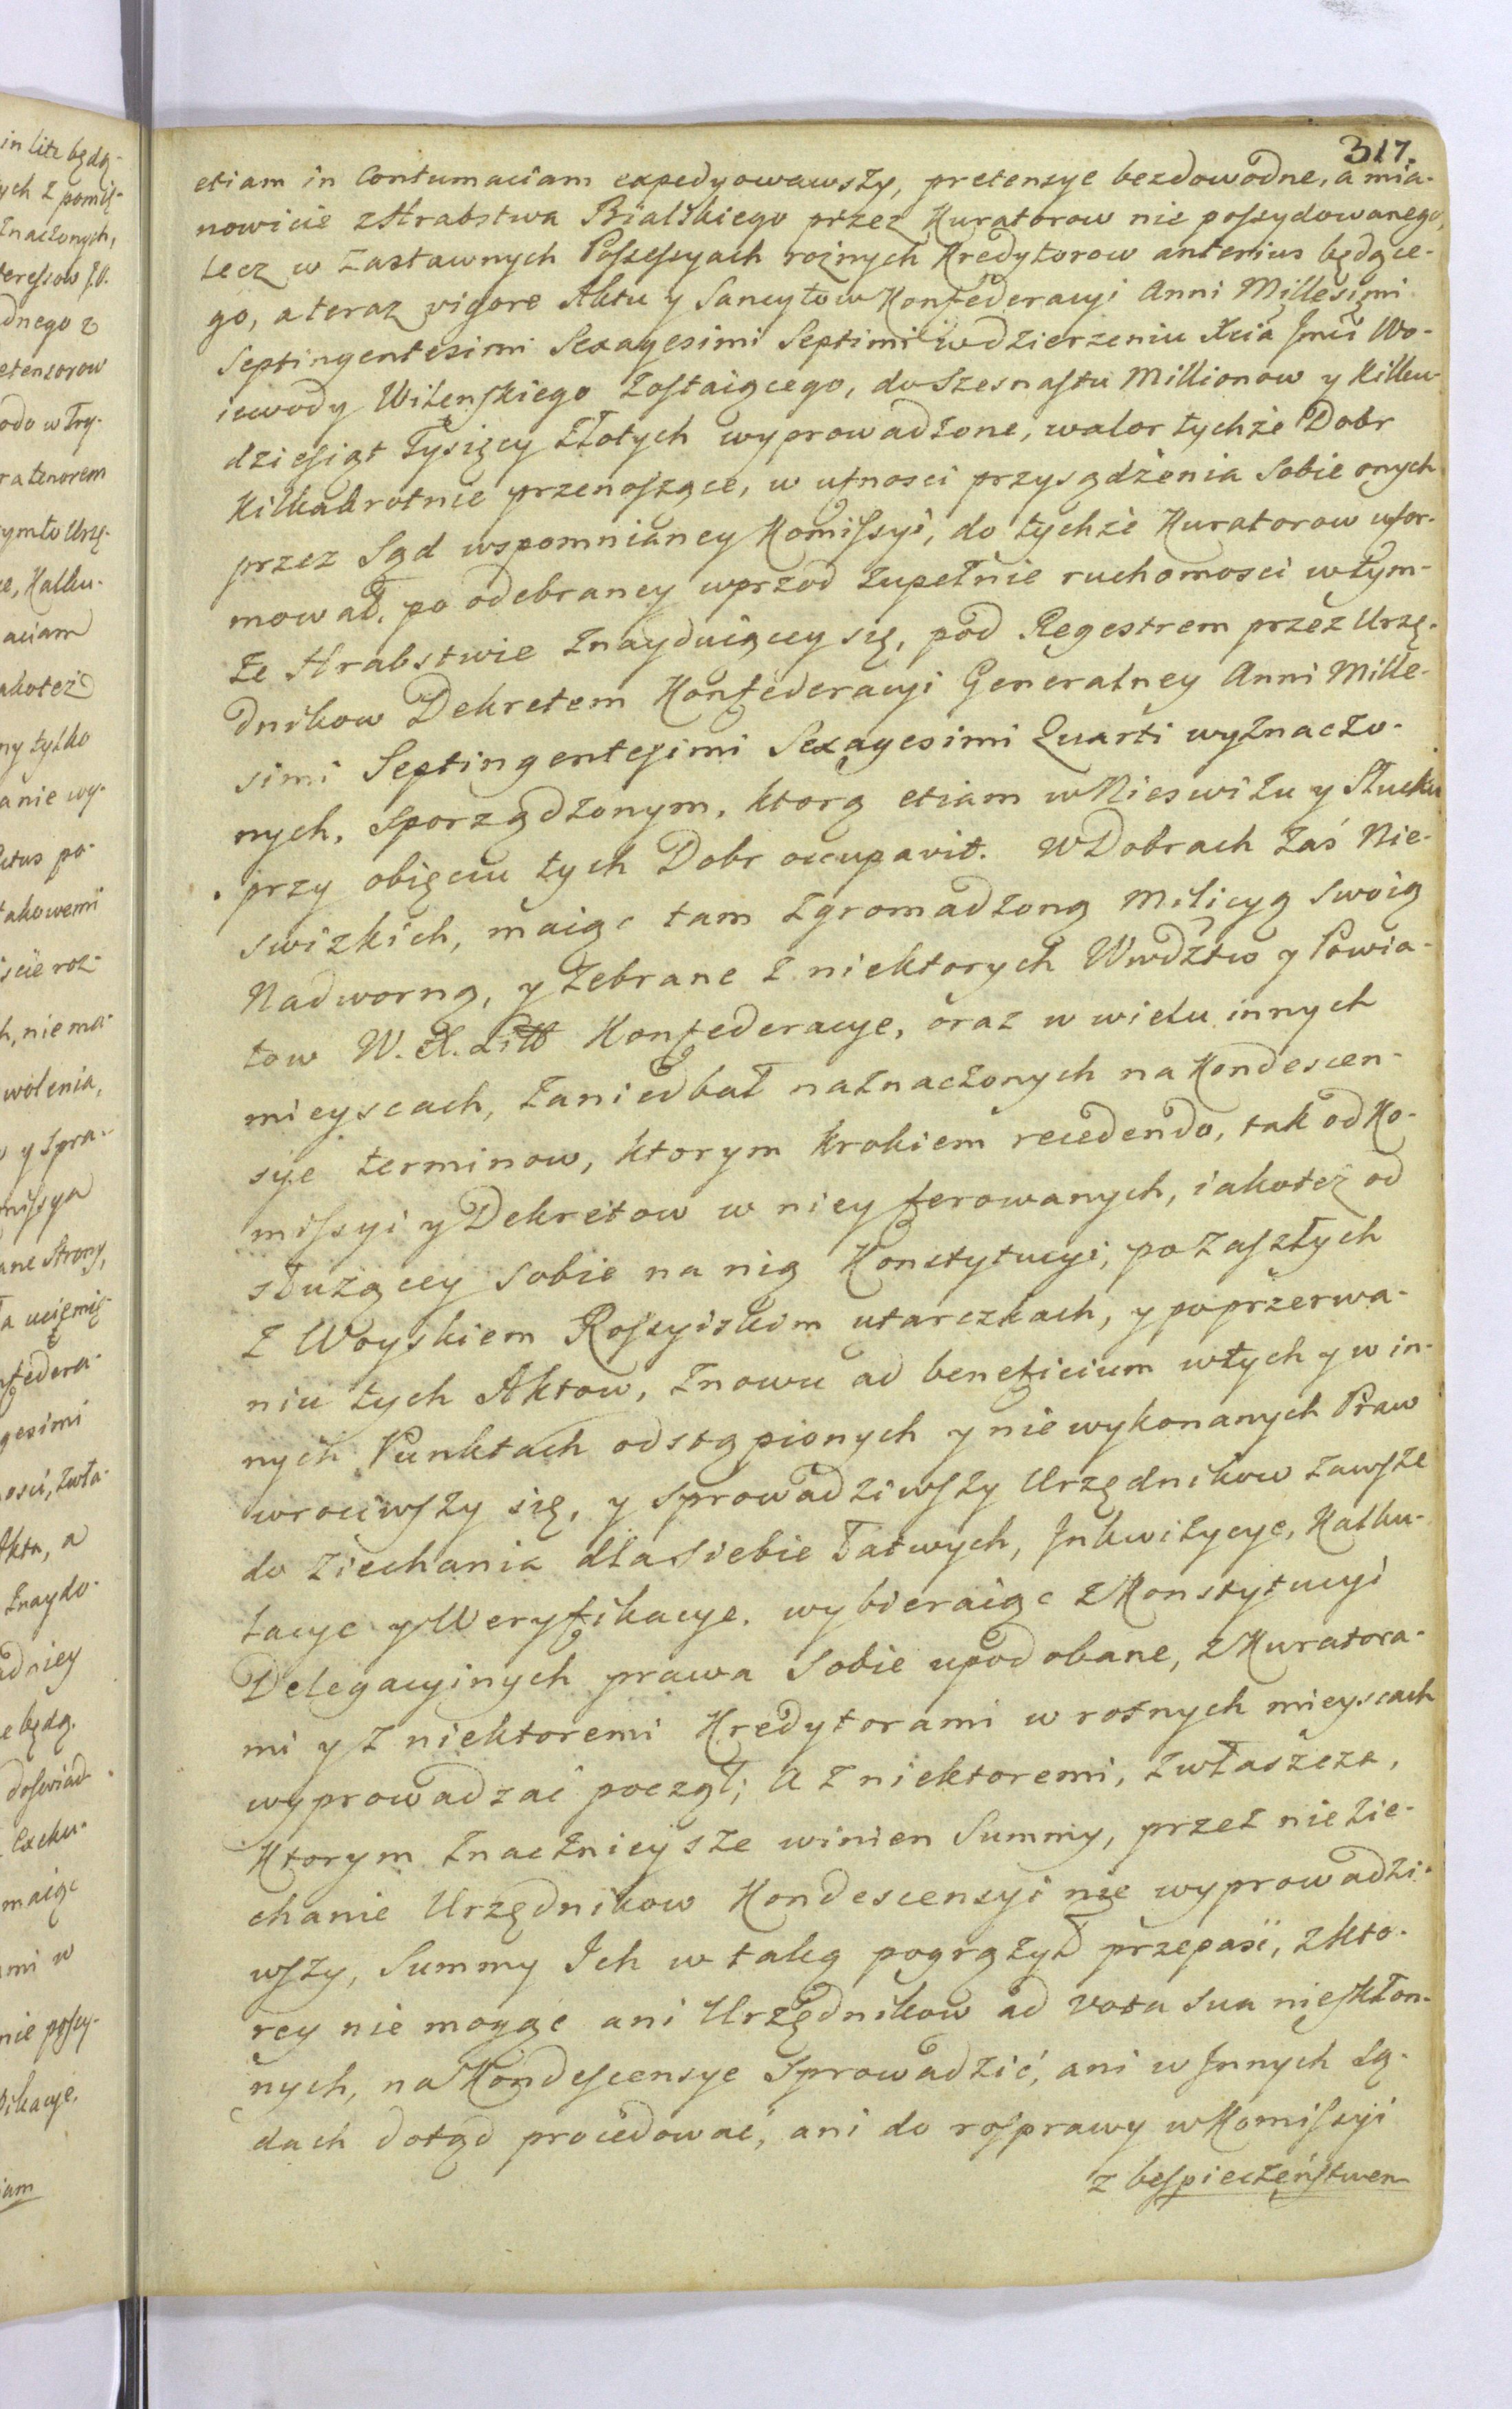 317.
etiam in Contumaciam expedyowawszy, pretensye bezdowodne, a mia-
nowicie z Hrabstwa Bialskiego przez Kuratorow nie possydowanego,
lecz w zastawnych Possessyach roznych Kredytorow anterius będące-
go, a teraz vigore Aktu y Sancytow Konfederacyi Anni Millesimi
Septingentesimi Sexagesimi Septimi w dzierzeniu Xcia Jmci Wo-
iewody Wilenskiego zostaiącego, do Szesnastu Millionow y kilku-
dziesiąt Tysięcy Złotych wyprowadzone, walor tychże Dobr
kilkakrotnie przenoszące, w ufnosci przysądzenia sobie onych
przez Sąd wspomnianey Komissyi, do tychże Kuratorow ufor-
mował, po odebraney wprzod zupełnie ruchomosci w tym-
że Hrabstwie znayduiącey się, pod Regestrem przez Urzę-
dnikow Dekretem Konfederacyi Generalney Anni Mille-
simi Septingentesimi Sexagesimi Quarti wyznaczo-
nych, sporządzonym, ktorą etiam w Nieswizu y Słucku
przy obięciu tych Dobr occupavit. W Dobrach zaś Nie-
swizkich, maiąc tam zgromadzoną Milicyą swoią
Nadworną, y zebrane z niektorych Wwdztw y Powia-
tow W. X. Litt Konfederacye, oraz w wielu innych
mieyscach, zaniedbał naznaczonych na Kondescen-
sye terminow, ktorym krokiem recedendo, tak od Ko-
missyi y Dekretow w niey ferowanych, iakoteż od
służącey sobie na nią Konstytucyi, po zaszłych
z Woyskiem Rossyiskim utarczkach, y po przerwa-
niu tych Aktow, znowu ad beneficium w tych y w in-
nych Punktach odstąpionych y nie wykonanych Praw
wrociwszy się, y sprowadziwszy Urzędnikow zawsze
do ziechania dla siebie łatwych, Inkwizycye, Kalku-
lacye y Weryfikacye, wybieraiąc z Konstytucyi
Delegacyinych prawa sobie upodobane, z Kuratora-
mi y z niektoremi Kredytorami w rożnych mieyscach
wyprowadzać począł; a z niektoremi, zwłaszcza,
Ktorym znacznieysze winien Summy, przez nie zie-
chanie Urzędnikow Kondescensyi nie wyprowadzi-
wszy, Summy Ich w taką pogrązył przepaść, z kto-
rey nie mogąc ani Urzędnikow ad vota sua nieskłon-
nych, na Kondescensye sprowadzić, ani w Innych Są-
dach dotąd procedować, ani do rosprawy w Komissyi
z bespieczeństwem